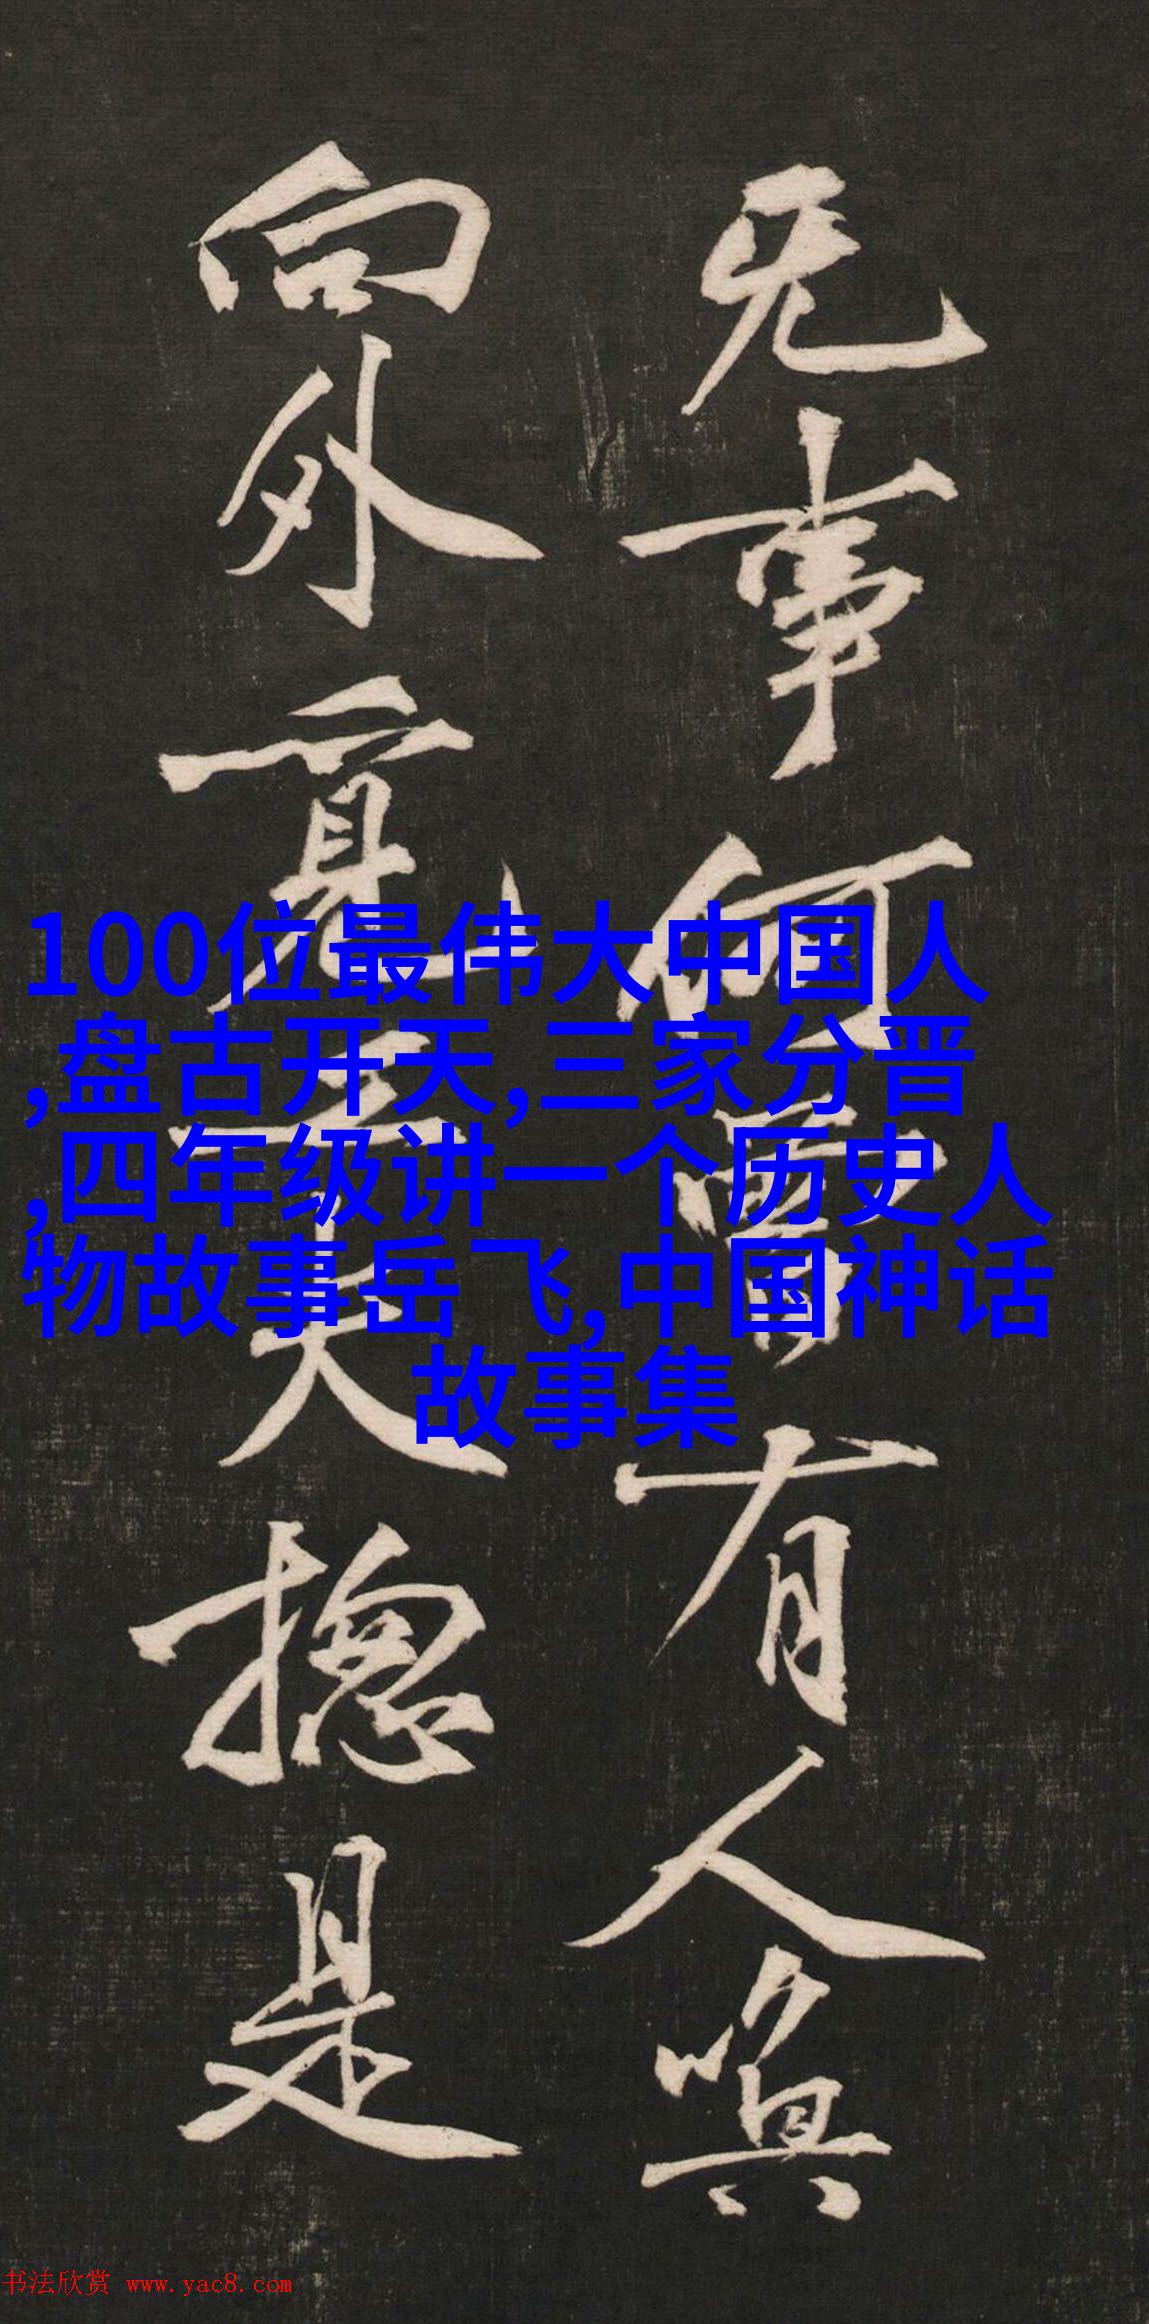 无事何曾有人喚
向外覓工夫揔是
100位最伟大中国人
,盘古开天,三家分晋
,四年级讲一个历史人
物故事岳飞,中国神话
故事集
书法欣赏 www.yac8.com